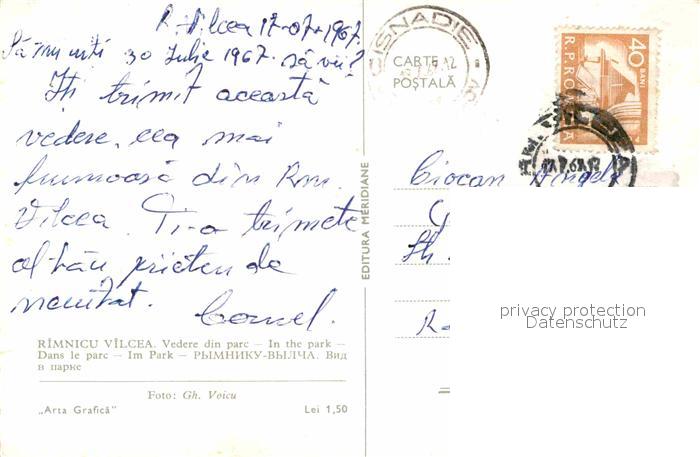 R. Vîlcea 17-07-1967.
Să nu uiți 30 Iulie 1967. să vii?
Îți trimit această
vedere, cea mai
frumoasă din Rm.
Vîlcea. Ți-o trimete
al tău prieten de
neuitat.
Cornel.
RÎMNICU VÎLCEA. Vedere din parc — In the park —
Dans le parc — Im Park — РЫМНИКУ-ВЫЛЧА. Вид
в парке
Foto: Gh. Voicu
„Arta Grafică"
Lei 1,50
EDITURA MERIDIANE
CISNADIE
CARTE
POȘTALĂ
40 BANI
R.P.ROMÎNA
Ciocan
privacy protection
Datenschutz